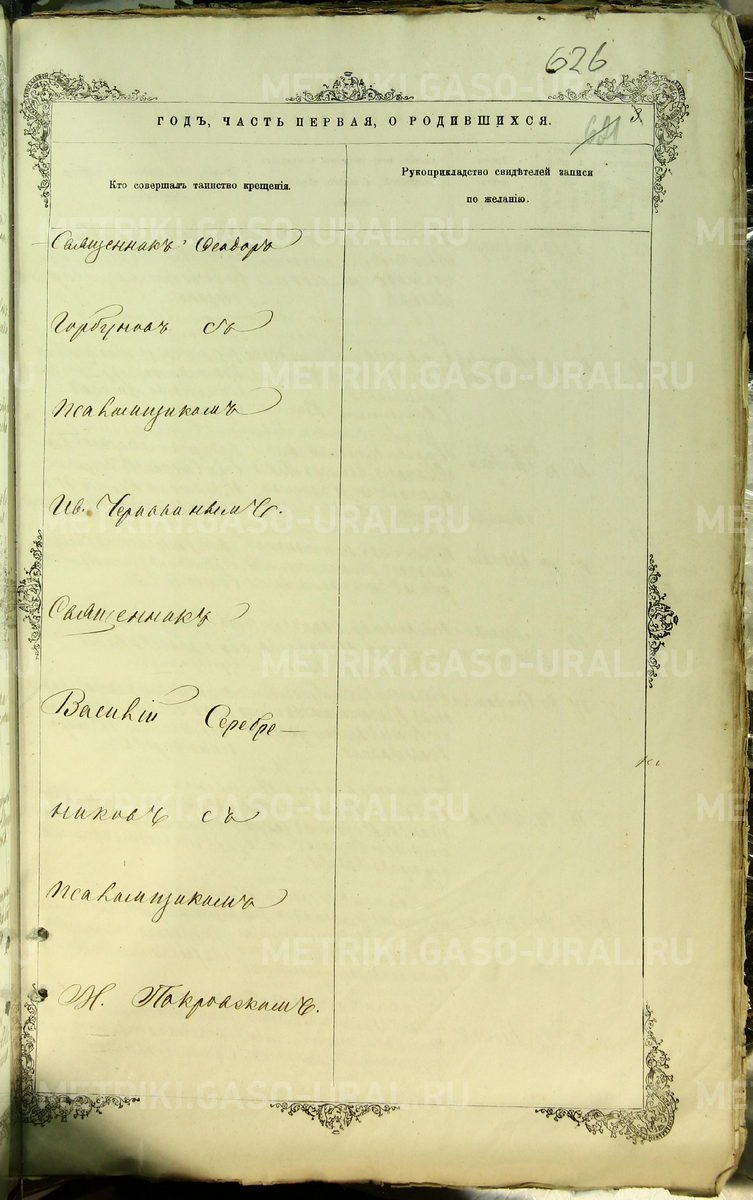 626
ГОДЪ, ЧАСТЬ ПЕРВАЯ, О РОДИВШИХСЯ.
Кто совершалъ таинство крещенія.
Рукоприкладство свидѣтелей записи
по желанію.
Священникъ Ѳеодоръ
Горбуновъ съ
псаломщикомъ
Ив.
Священникъ
Василій Серебре-
никовъ съ
псаломщикомъ
Н. Покровскимъ.
METRIKI.GASO-URAL.RU